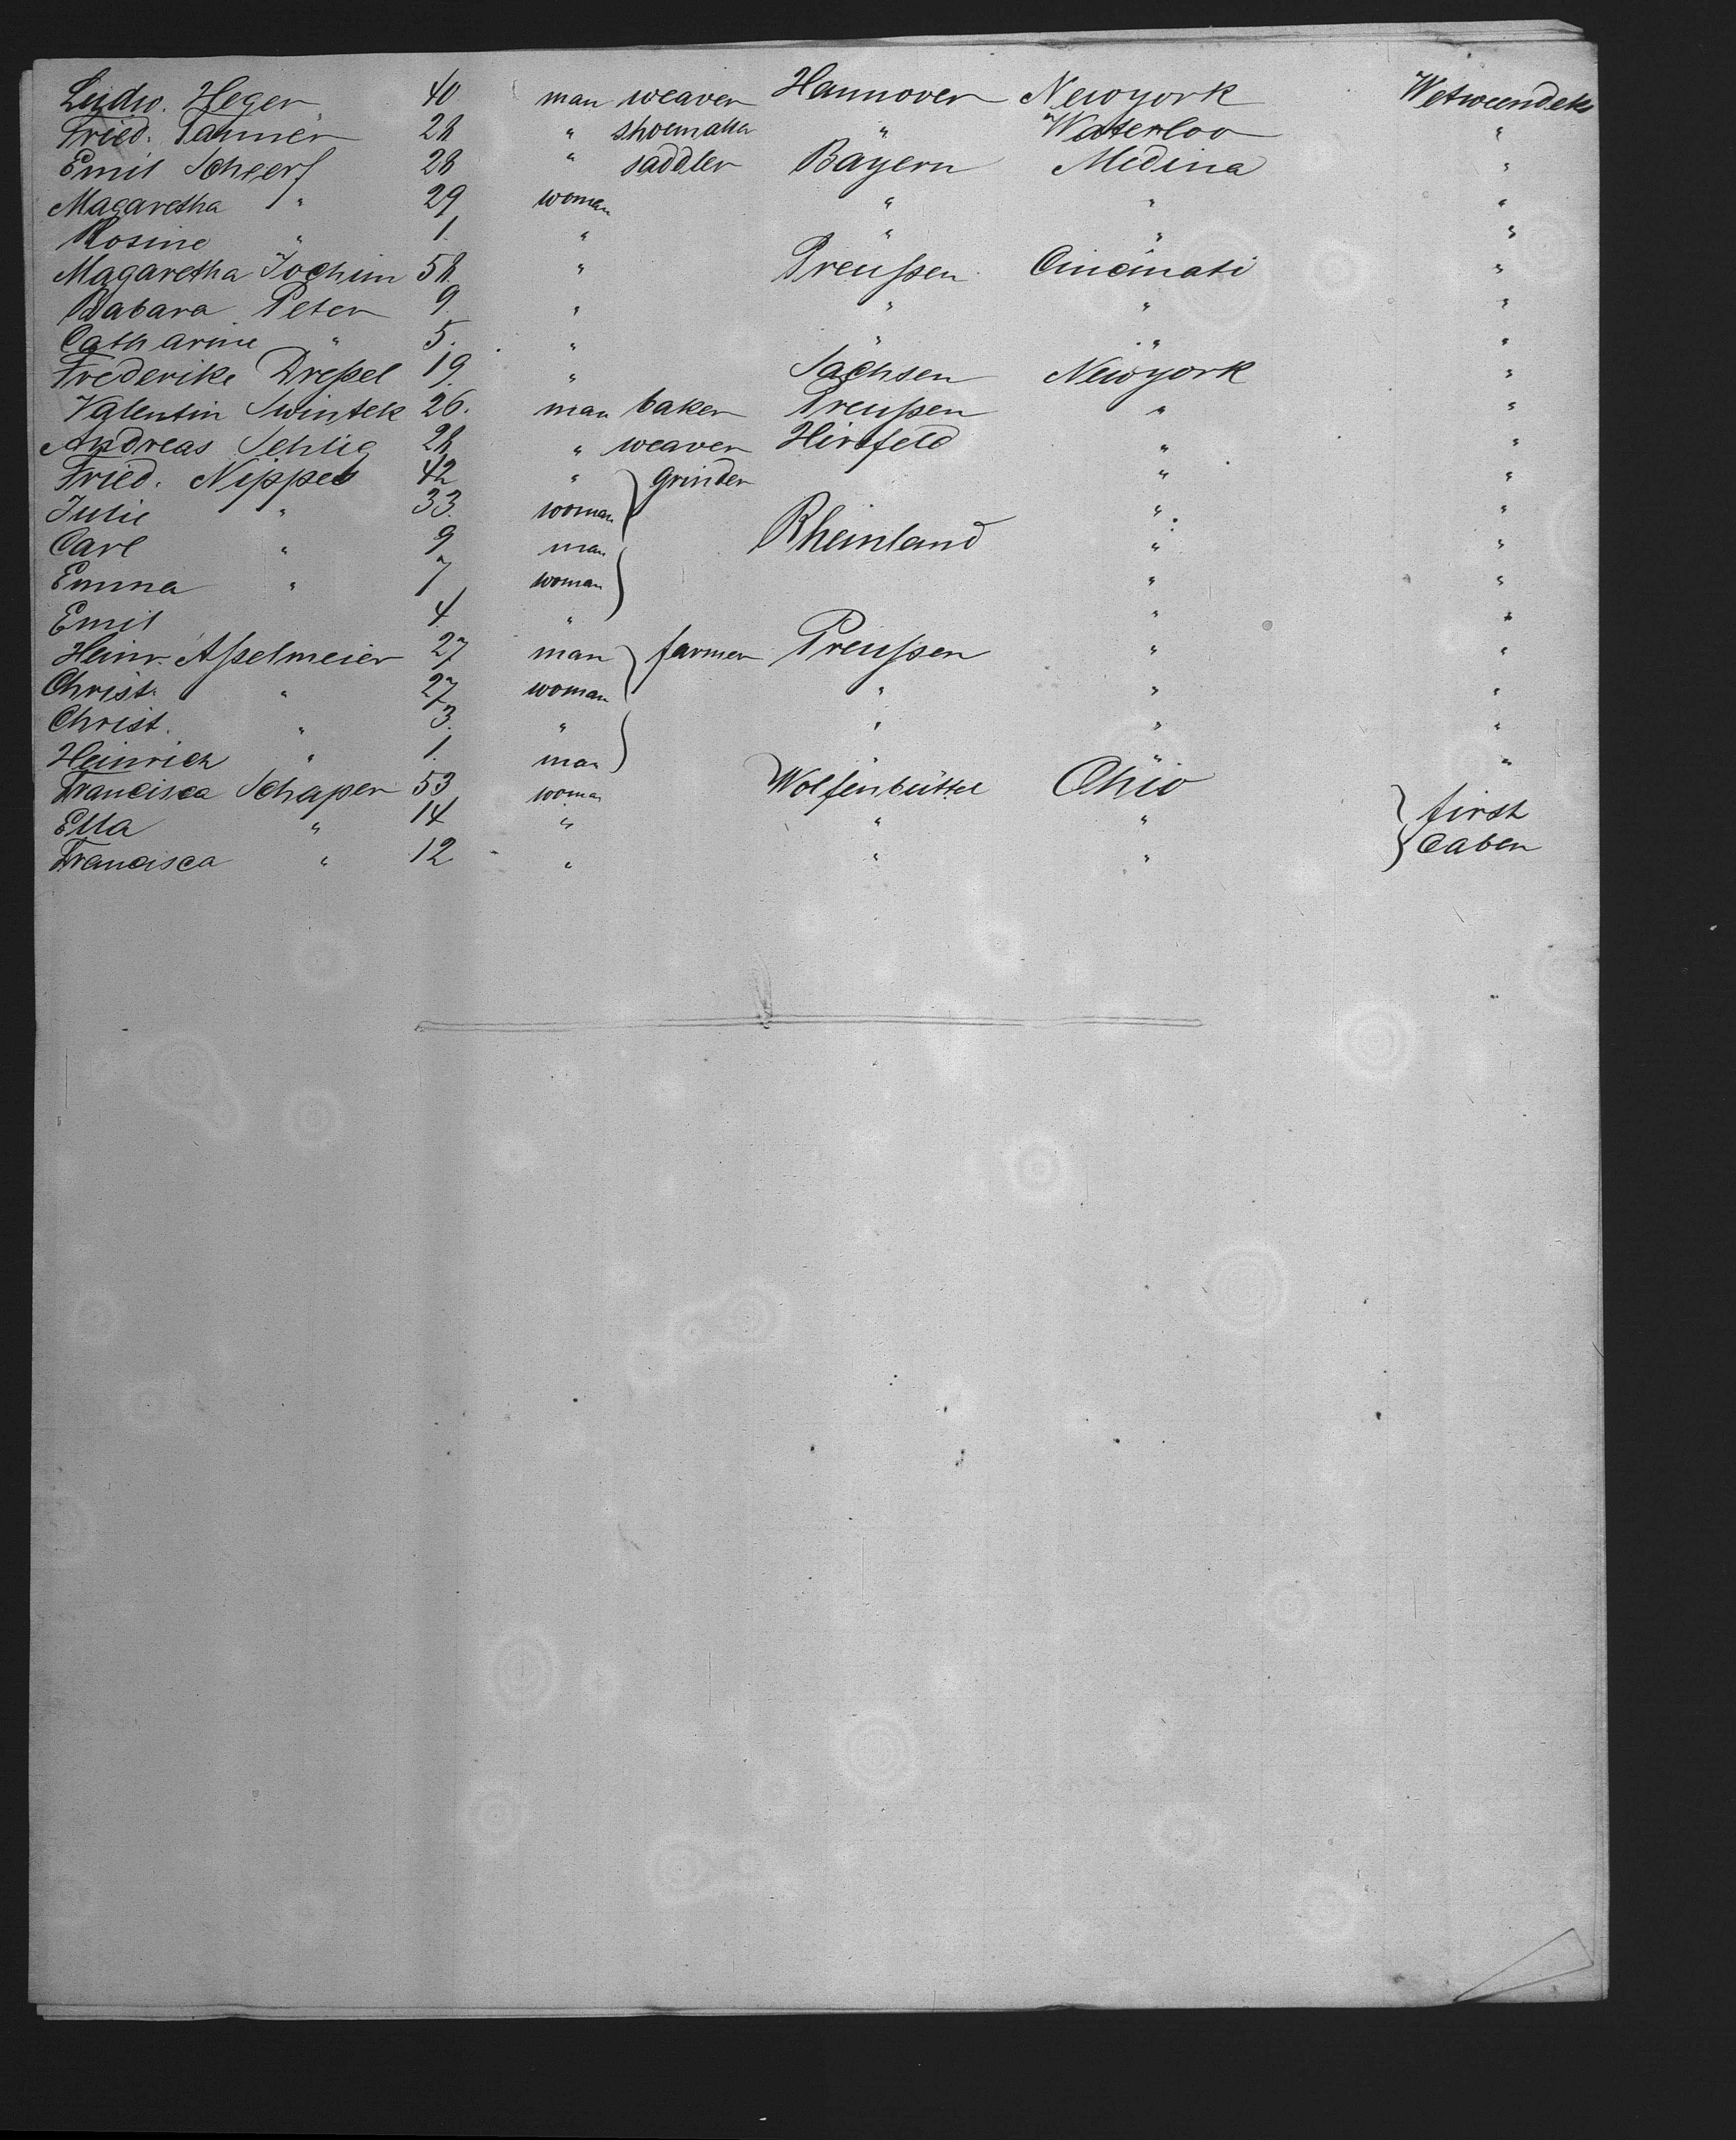 Ludw. Heger 40 man weaver Hannover Newyork Betweendek
Fried. Tanner 28 " shoemaker " Waterloo "
Emil Scheerf 28 " saddler Bayern Medina "
Magaretha " 29 woman " " "
Rosine " 1. " " " "
Magaretha Jochim 58. " Preußen Cincinati "
Babara Peter 9. " " " "
Catharine " 5. " " " "
Frederike Dreßel 19. " Sachsen Newyork "
Valentin Swintek 26. man baker Preußen " "
Andreas Sehlig 28 " weaver Hirsfeld " "
Fried. Nippes 42 " grinder " "
Julie " 33. woman " "
Carl " 9 man Rheinland " "
Emma " 7 woman " "
Emil 4. " " "
Heinr. Aßelmeier 27 man farmer Preußen " "
Christ. " 27 woman " " "
Christ. " 3. " " " "
Heinrich " 1. man " "
Francisca Schaper 53 woman Wolfenbüttel Ohio
Ella " 14 " " " first
Francisca " 12 " " " Caben